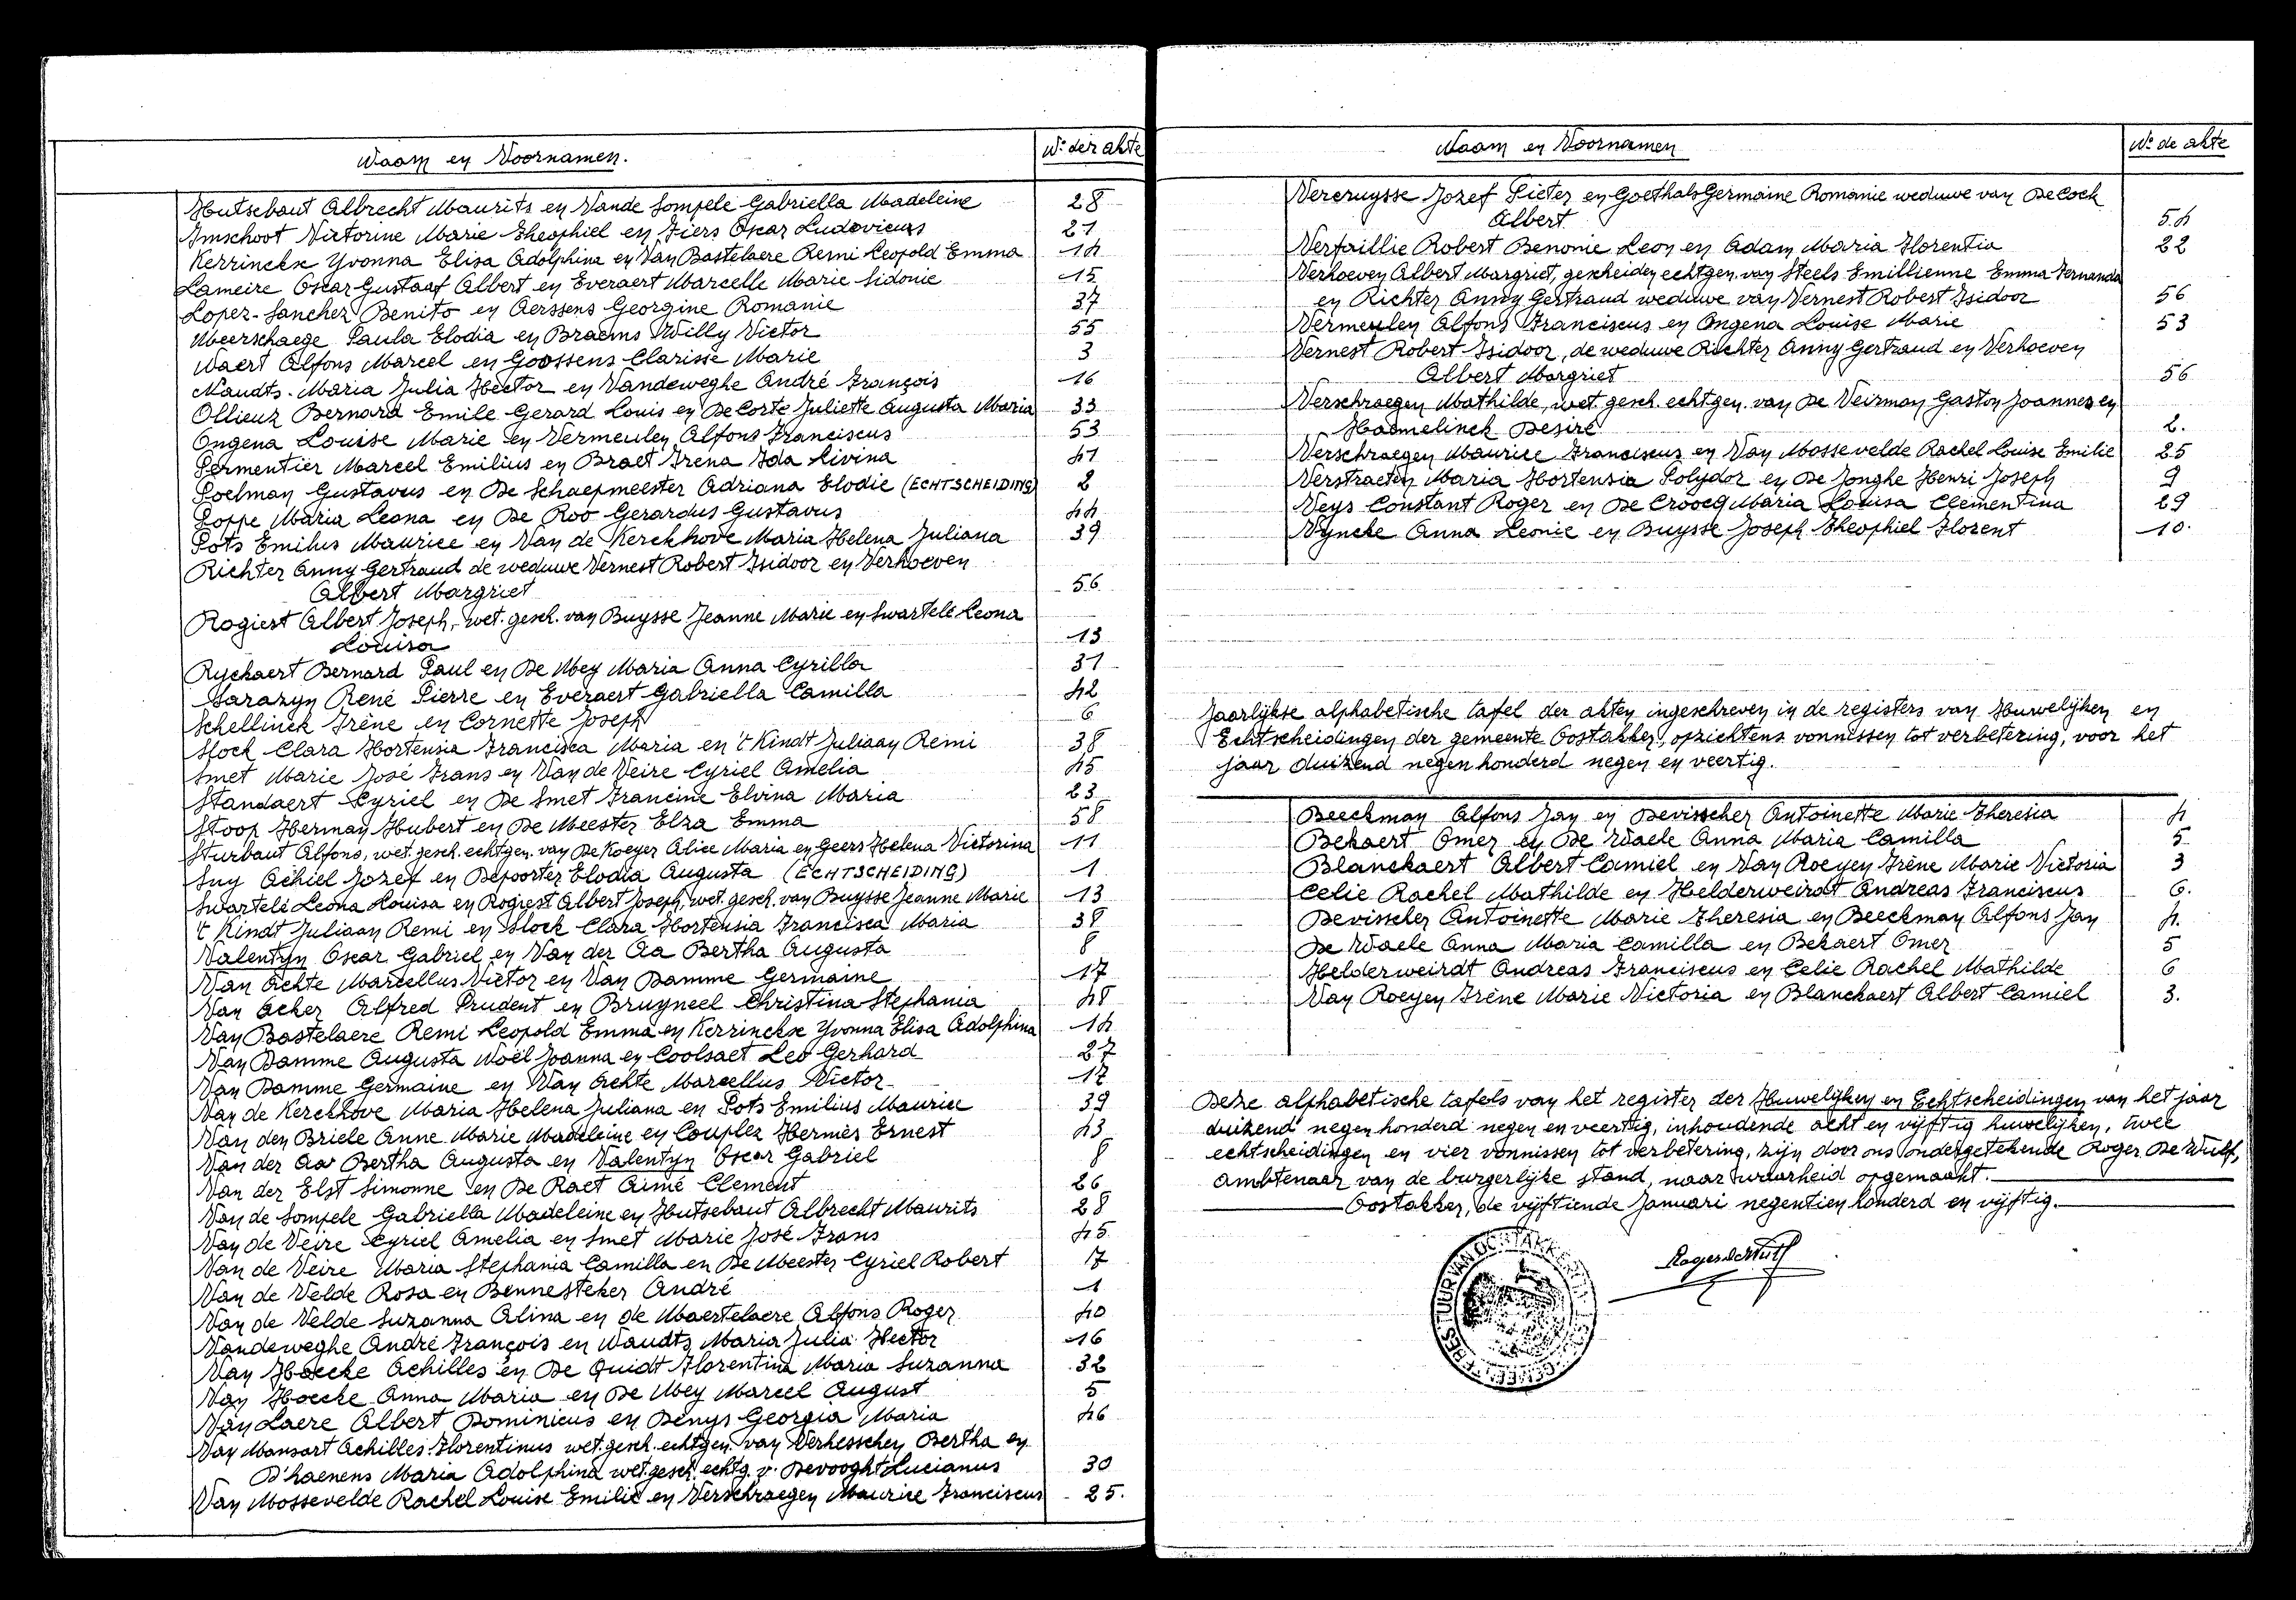 Naam en Voornamen. Nº der akte
Hutsebaut Albrecht Maurits en Van de Sompele Gabriella Madeleine 28
Imschoot Victorine Marie Theophiel en Fiers Oscar Ludovicus 21
Kerrinckx Yvonna Elisa Adolphina en Van Bastelaere Remi Leopold Emma 14
Lameire Oscar Gustaaf Albert en Everaert Marcelle Marie Sidonie 15
Lopez-Sanchez Benito en Aerssens Georgine Romanie 37
Meerschaege Paula Elodia en Braems Willy Victor 55
Naert Alfons Marcel en Goossens Clarisse Marie 3
Naudts Maria Julia Hector en Vandeweghe André François 16
Ollieux Bernard Emile Gerard Louis en De Corte Juliette Augusta Maria 33
Ongena Louise Marie en Vermeulen Alfons Franciscus 53
Permentier Marcel Emilius en Braet Irena Ida Livina 41
Poelman Gustavus en De Schaepmeester Adriana Elodie (ECHTSCHEIDING) 2
Poppe Maria Leona en De Roo Gerardus Gustavus 44
Pots Emilius Maurice en Van de Kerckhove Maria Helena Juliana 39
Richter Anny Gertraud de weduwe Vernest Robert Isidoor en Verhoeven
Albert Margriet 56
Rogiest Albert Joseph, wet. gesch. van Buysse Jeanne Marie en Swartelé Leona
Louisa 13
Ryckaert Bernard Paul en De Mey Maria Anna Cyrilla 31
Sarazyn René Pierre en Everaert Gabriella Camilla 42
Schellinck Irène en Cornette Joseph 6
Slock Clara Hortensia Francisca Maria en 't Kindt Juliaan Remi 38
Smet Marie José Frans en Van de Veire Cyriel Amelia 45
Standaert Cyriel en De Smet Francine Elvina Maria 23
Stoop Herman Hubert en De Meester Elza Emma 58
Sturbaut Alfons, wet. gesch. echtgen. van De Koeyer Alice Maria en Geers Helena Victorina 11
Suy Achiel Jozef en Depoorter Elodia Augusta (ECHTSCHEIDING) 1
Swartelé Leona Louisa en Rogiest Albert Joseph, wet. gesch. van Buysse Jeanne Marie 13
't Kindt Juliaan Remi en Slock Clara Hortensia Francisca Maria 38
Valentyn Oscar Gabriel en Van der Aa Bertha Augusta 8
Van Achte Marcellus Victor en Van Damme Germaine 17
Van Acker Alfred Prudent en Bruyneel Christina Stephania 48
Van Bastelaere Remi Leopold Emma en Kerrinckx Yvonna Elisa Adolphina 14
Van Damme Augusta Noël Joanna en Coolsaet Leo Gerhard 27
Van Damme Germaine en Van Achte Marcellus Victor 17
Van de Kerckhove Maria Helena Juliana en Pots Emilius Maurice 39
Van den Briele Anne Marie Madeleine en Couplez Hermès Ernest 43
Van der Aa Bertha Augusta en Valentyn Oscar Gabriel 8
Van der Elst Simonne en De Raet Aimé Clement 26
Van de Sompele Gabriella Madeleine en Hutsebaut Albrecht Maurits 28
Van de Veire Cyriel Amelia en Smet Marie José Frans 45
Van de Veire Maria Stephania Camilla en De Meester Cyriel Robert 17
Van de Velde Rosa en Bennesteker André 1
Van de Velde Suzanna Alina en de Maertelaere Alfons Roger 40
Vandeweghe André François en Naudts Maria Julia Hector 16
Van Hoecke Achilles en De Quidt Florentina Maria Suzanna 32
Van Hoecke Anna Maria en De Mey Marcel August 5
Van Laere Albert Dominicus en Denys Georgia Maria 46
Van Mansart Achilles Florentinus wet. gesch. echtgen. van Verhesschen Bertha en
D'haenens Maria Adolphina wet. gesch. echtg. v. Devooght Lucianus 30
Van Mossevelde Rachel Louise Emilie en Verschraegen Maurice Franciscus 25.
Naam en Voornamen Nº de akte
Vercruysse Jozef Pieter en Goethals Germaine Romanie weduwe van De Cock
Albert 54
Verfaillie Robert Benonie Leon en Adam Maria Florentia 22
Verhoeven Albert Margriet, gescheiden echtgen. van Steels Emillienne Emma Fernanda
en Richter Anny Gertraud weduwe van Vernest Robert Isidoor 56
Vermeulen Alfons Franciscus en Ongena Louise Marie 53
Vernest Robert Isidoor, de weduwe Richter Anny Gertraud en Verhoeven
Albert Margriet 56
Verschraegen Mathilde, wet. gesch. echtgen. van De Veirman Gaston Joannes en
Haemelinck Desiré 2.
Verschraegen Maurice Franciscus en Van Mossevelde Rachel Louise Emilie 25
Verstraeten Maria Hortensia Polydor en De Jonghe Henri Joseph 9
Veys Constant Roger en De Croocq Maria Louisa Clementina 29
Vyncke Anna Leonie en Buysse Joseph Theophiel Florent 10.
Jaarlijkse alphabetische tafel der akten ingeschreven in de registers van Huwelijken en
Echtscheidingen der gemeente Oostakker, opzichtens vonnissen tot verbetering, voor het
jaar duizend negenhonderd negen en veertig.
Beeckman Alfons Jan en Devisscher Antoinette Marie Theresia 4
Bekaert Omer en De Waele Anna Maria Camilla 5
Blanckaert Albert Camiel en Van Roeyen Irène Marie Victoria 3
Celie Rachel Mathilde en Helderweirdt Andreas Franciscus 6.
Devisscher Antoinette Marie Theresia en Beeckman Alfons Jan 4.
De Waele Anna Maria Camilla en Bekaert Omer 5
Helderweirdt Andreas Franciscus en Celie Rachel Mathilde 6
Van Roeyen Irène Marie Victoria en Blanckaert Albert Camiel 3.
Deze alphabetische tafels van het register der Huwelijken en Echtscheidingen van het jaar
duizend negenhonderd negen en veertig, inhoudende acht en vijftig huwelijken, twee
echtscheidingen en vier vonnissen tot verbetering, zijn door ons ondergetekende Roger De Wulf,
ambtenaar van de burgerlijke stand, naar waarheid opgemaakt.
Oostakker, de vijftiende Januari negentien honderd en vijftig.
Roger De Wulf